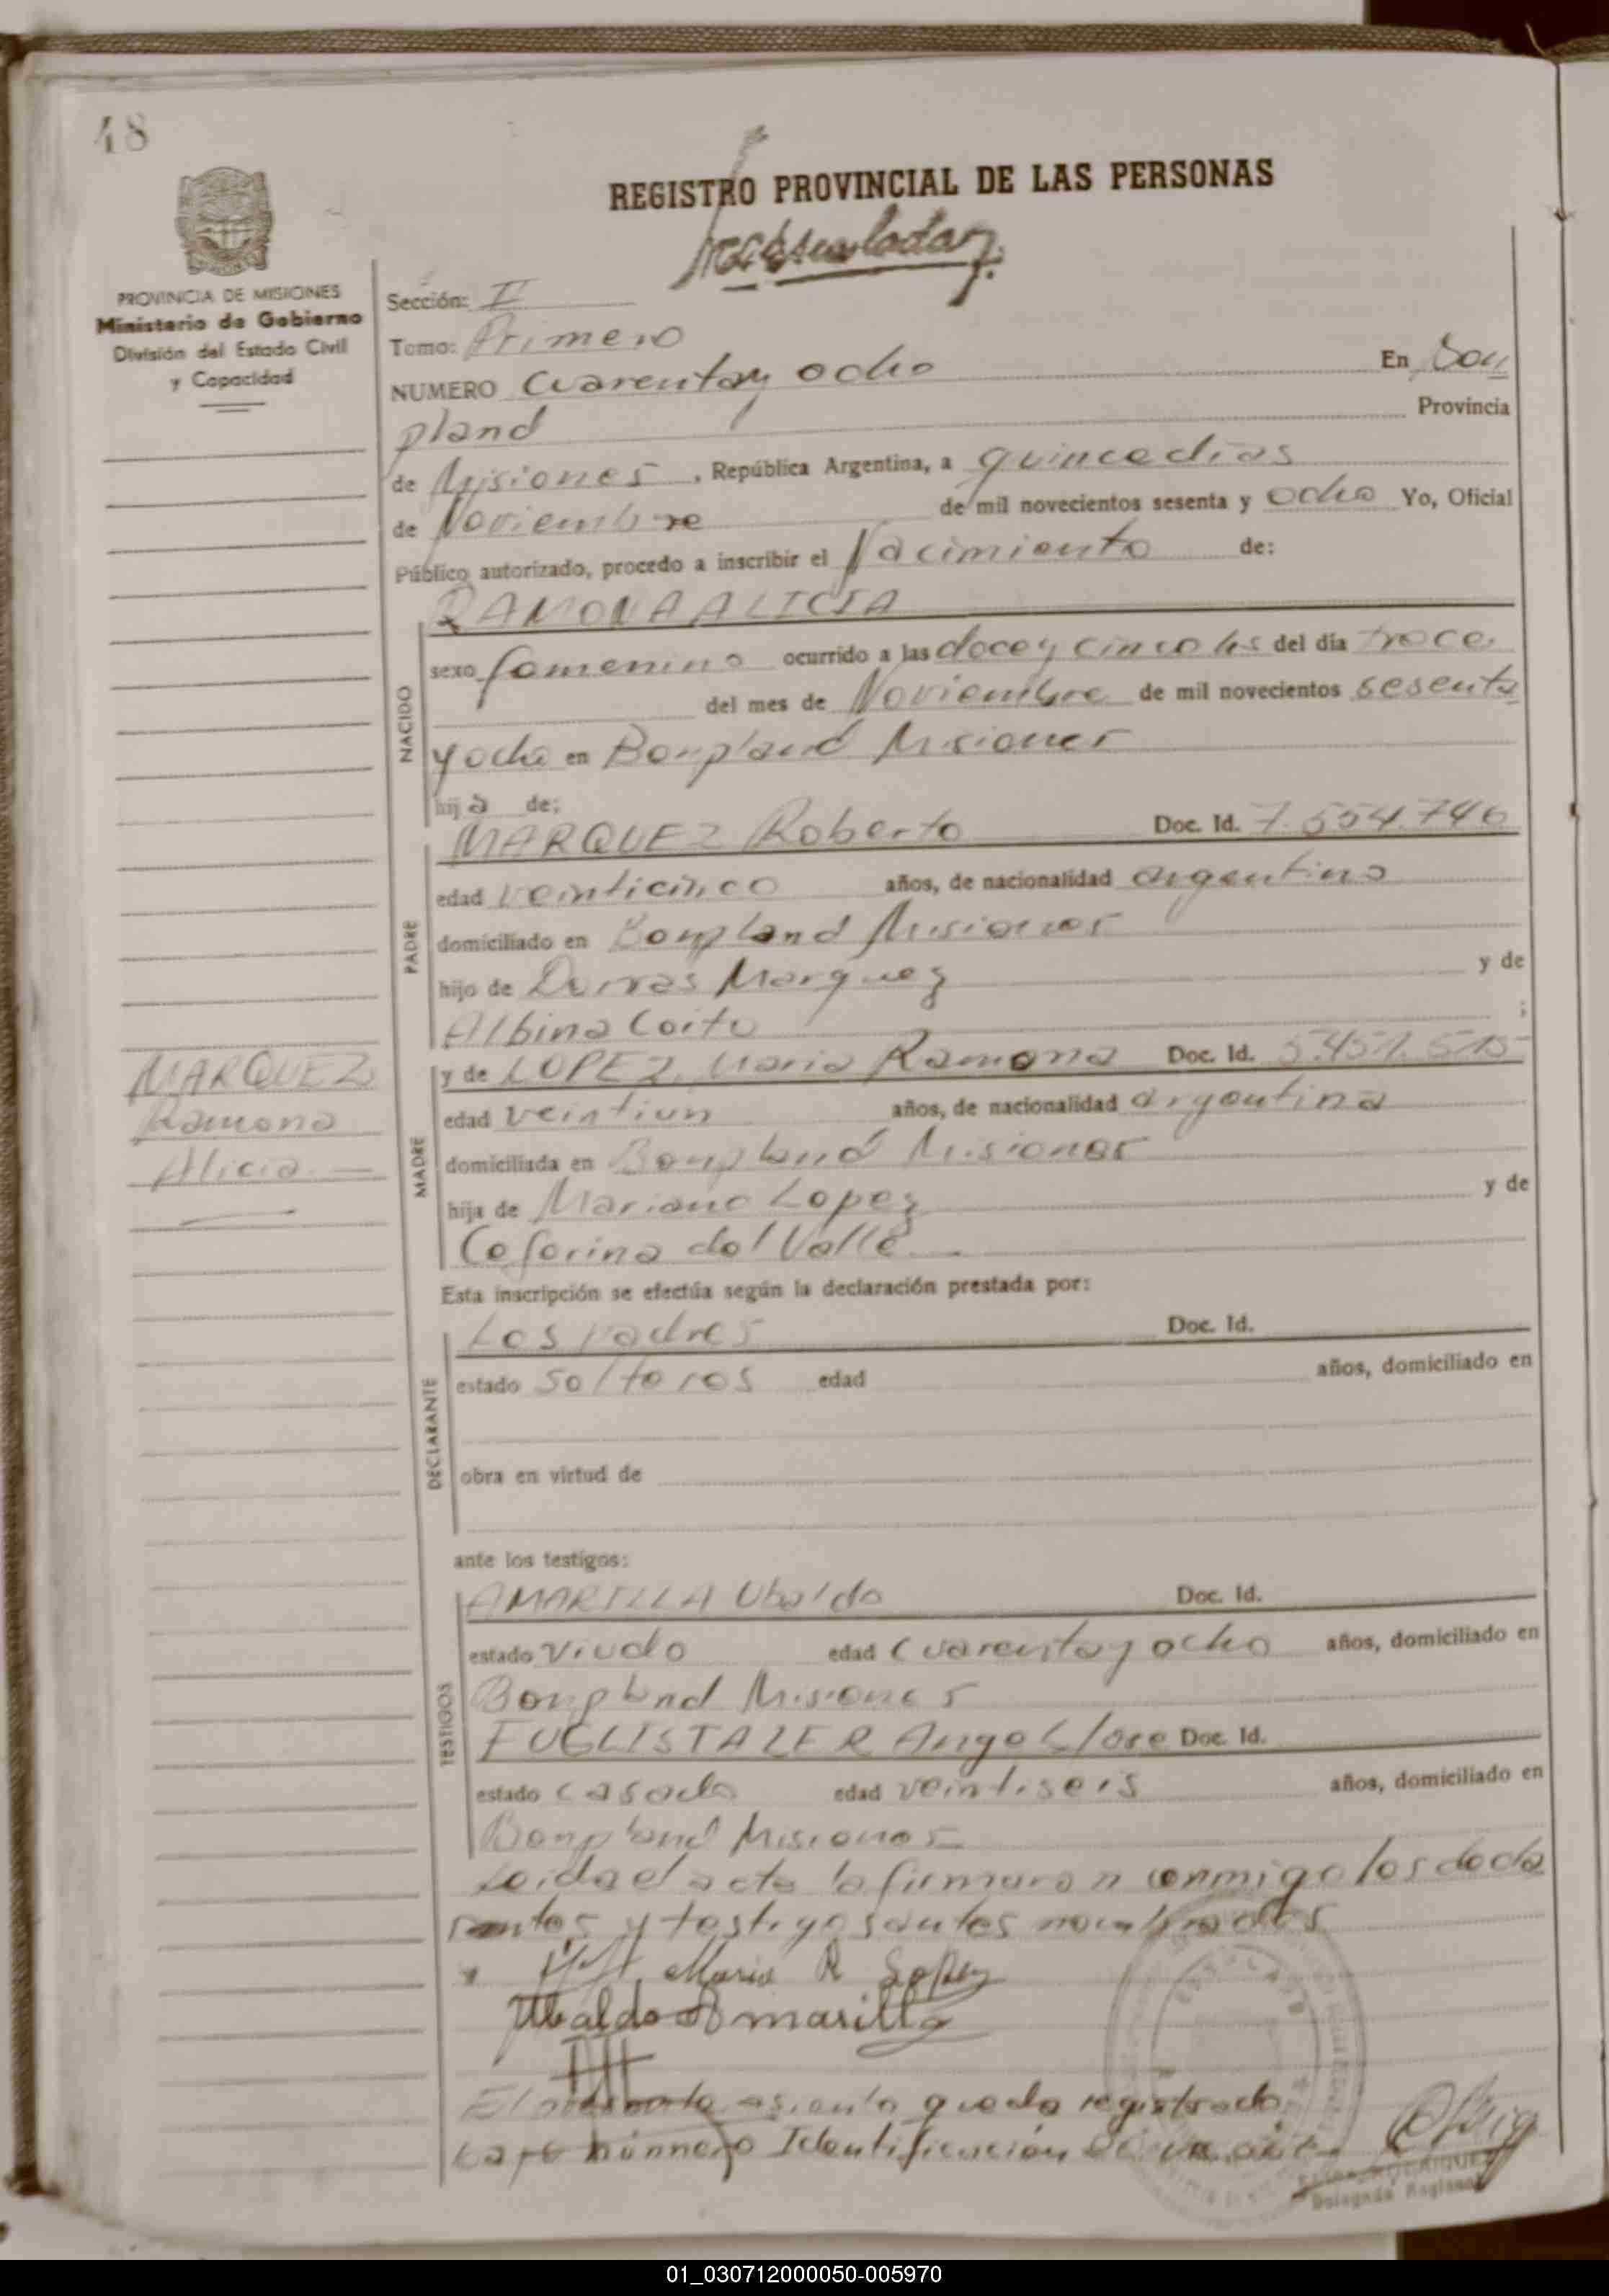 48
REGISTRO PROVINCIAL DE LAS PERSONAS
PROVINCIA DE MISIONES
Ministerio de Gobierno
División del Estado Civil
y Capacidad
Sección: II
Tomo: Primero
NUMERO Cuarenta y ocho En Bon
pland Provincia
de Misiones, República Argentina, a quince dias
de Noviembre de mil novecientos sesenta y ocho Yo, Oficial
Público autorizado, procedo a inscribir el Nacimiento de:
RAMONA ALICIA
NACIDO
sexo femenino ocurrido a las doce y cinco hs del día trece
del mes de Noviembre de mil novecientos sesenta
y ocho en Bonpland Misiones
hija de:
PADRE
MARQUEZ Roberto Doc. Id. 7.554.746
edad veinticinco años, de nacionalidad argentina
domiciliado en Bonpland Misiones
hijo de Marquez y de
Albina Coito ;
MARQUEZ
Ramona
Alicia
MADRE
y de LOPEZ, Maria Ramona Doc. Id.
edad veintiun años, de nacionalidad argentina
domiciliada en Bonpland Misiones
hija de Mariano Lopez y de
Ceferina del Valle
Esta inscripción se efectúa según la declaración prestada por:
DECLARANTE
Los padres Doc. Id.
estado solteros edad años, domiciliado en
obra en virtud de
ante los testigos:
TESTIGOS
AMARILLA Ubaldo Doc. Id.
estado viudo edad cuarenta y ocho años, domiciliado en
Bonpland Misiones
FUGLISTALER Angel Jose Doc. Id.
estado casado edad veintiseis años, domiciliado en
Bonpland Misiones
Leida el acta la firmaron conmigo los decla
rantes y testigos antes nombrados
Maria R Lopez
Ubaldo Amarilla
El presente asiento queda registrado
bajo número Identificación
RODRIGUEZ
Delegada
01_030712000050-005970